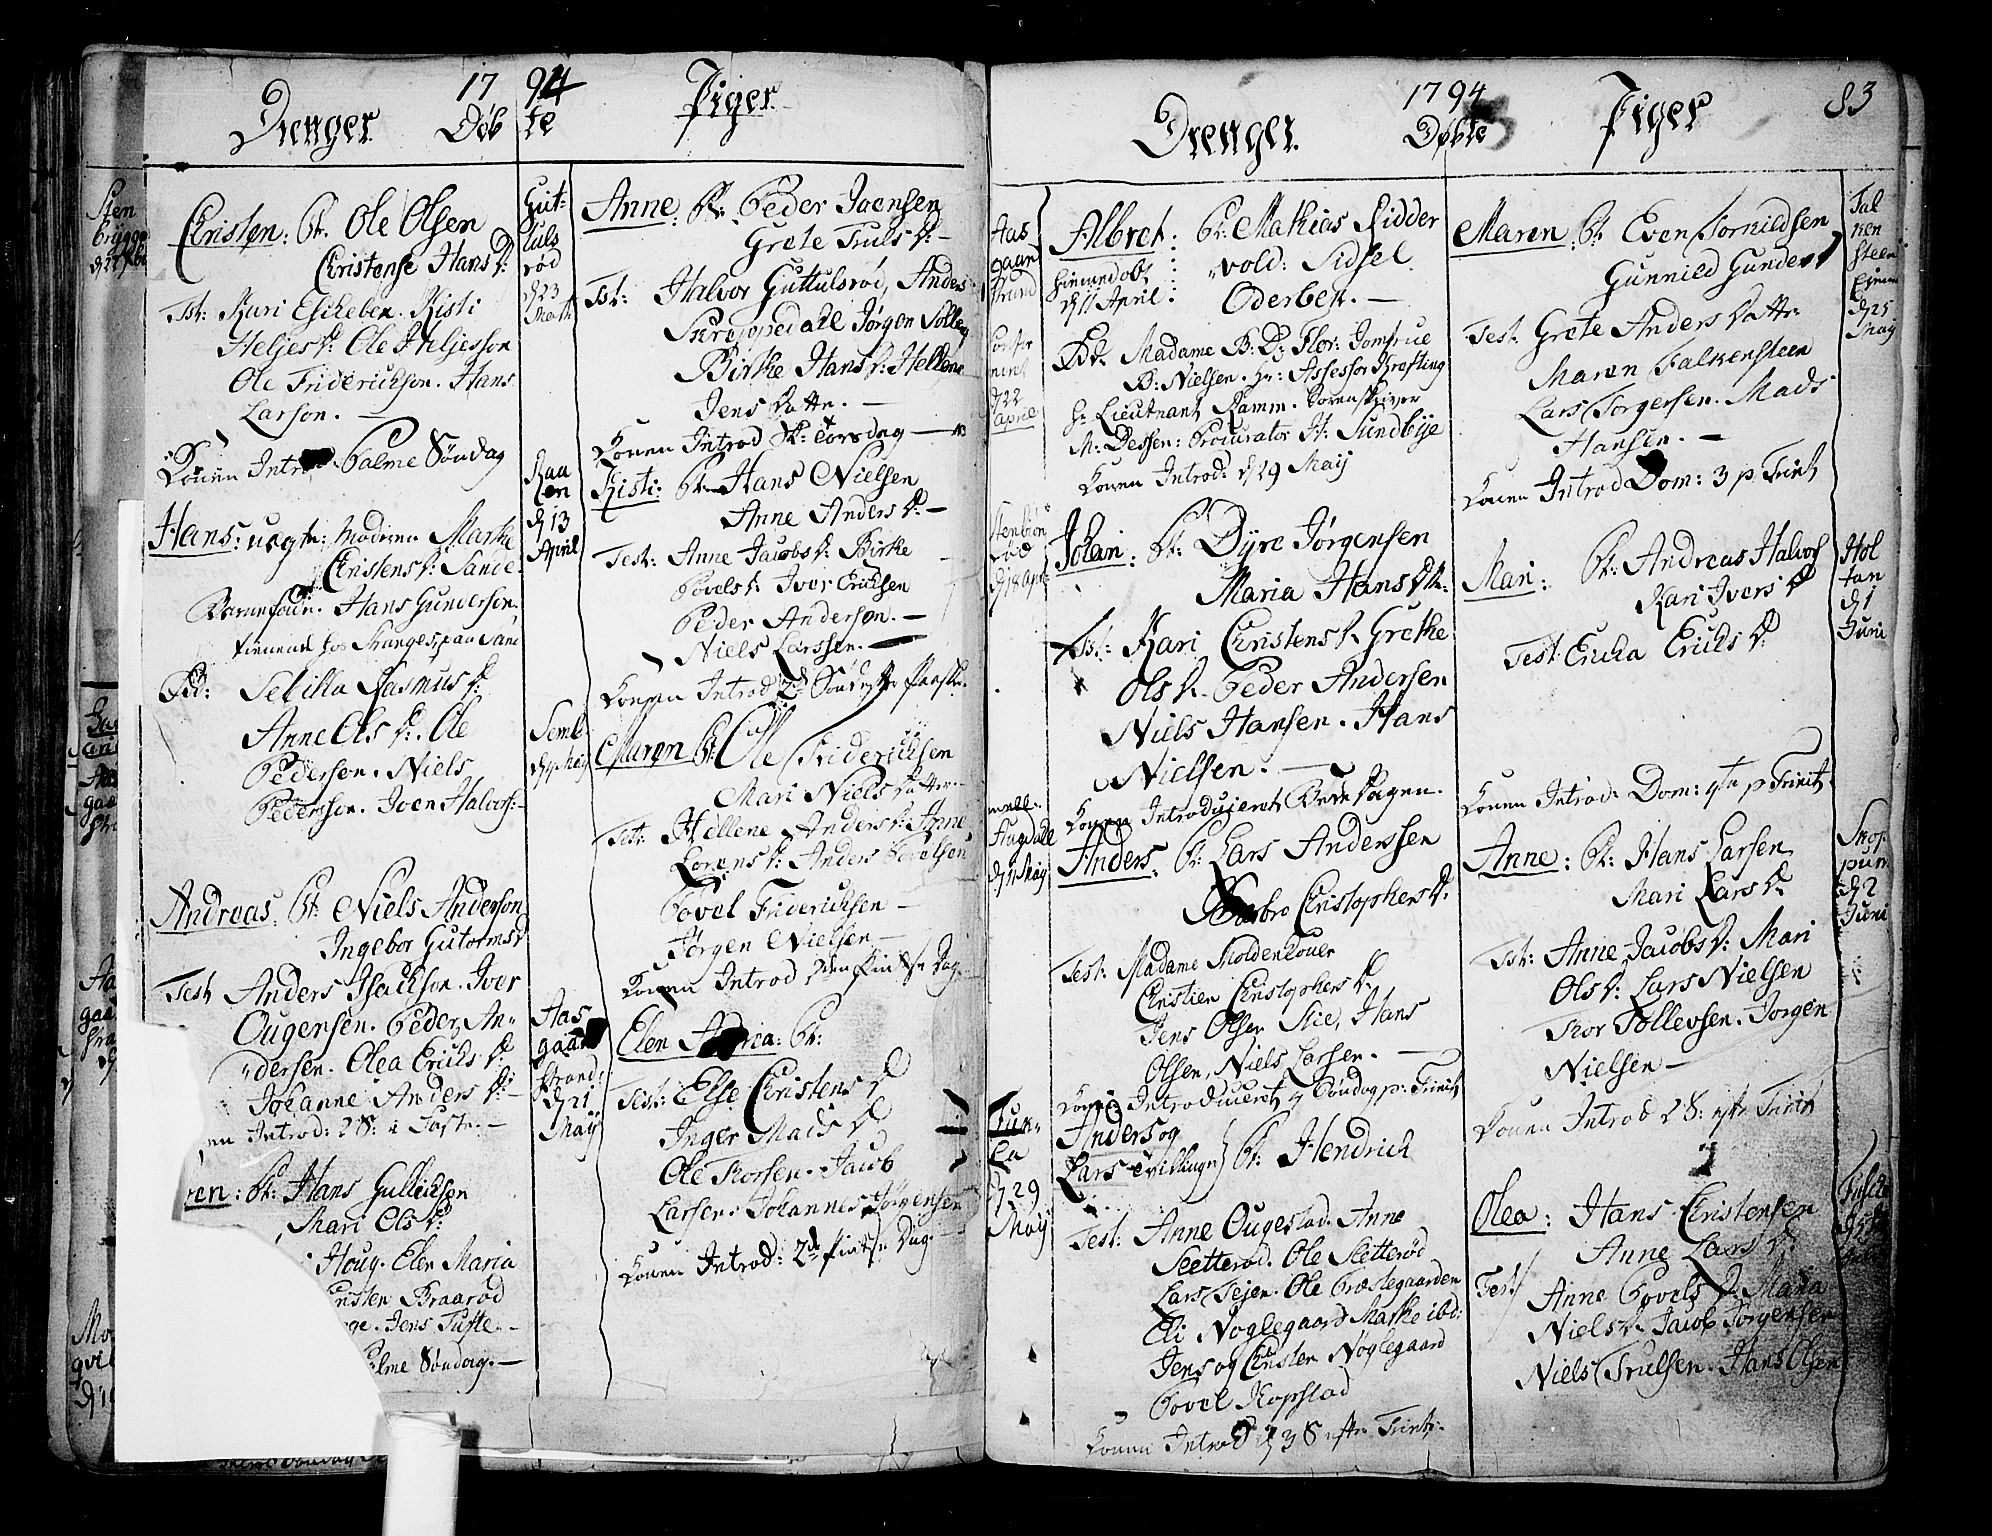 17 94
Drenger Døb te Piger
Sten
brygge
Christen: Pt. Ole Olsen
Christense Hans D:
Tst: Kari Eskeben. Kisti
Heljes D: Ole Heljesson
Ole Friderickson. Hans
Larson. —
Konen Introd Palme Søndag
Hans: uægte: Moderen Marthe
Christens D: Sande
Barnefader. Hans Gunderson.
tienende hos Stranges paa Sand
Fad: Sebilla Rasmus D:
Anne Ols D: Ole
Pedersen. Niels
Pedersen. Joen Halvors:
Andreas: Pt: Niels Anderson
Ingebor Gutorms D
Test Anders Isackson. Iver
Ougensen. Peder An-
dersen. Olea Ericks D:
Johanne Anders D: —
Introd: 2 S: i Faste. —
ren: Pt: Hans Gullickson
Mari Ols D:
Houg. Elen Maria
Christen Braarød
Jens Tufte. —
Palme Søndag. —
Gut-
tuls
rød
d 23
Marti
Anne: Pt: Peder Joensen
Grete Truls D: —
Tst: Halvor Guttulsrød, Anders
Skreppedall Jørgen Solberg
Birthe Hans D: Hellene
Jens Datter. —
Konen Introd Sk: torsdag —
Rau
en
d 13
April
Kisti: Pt. Hans Nielsen
Anne Anders D: —
Test: Anne Jacobs D: Birthe
Povels D: Iver Ericksen
Peder Anderson. —
Niels Larssen. —
Konen Introd 2d Søndag efter Paaske.
Semb
d 4 May
Maren Pt: Ole Fridericksen
Mari Niels Datter. —
Test: Hellene Anders D: Anne
Lorens D: Anders Povelsen
Povel Fridericksen —
Jørgen Nielsen —
Konen Introd 2den Pintse Dag. —
Aas
gaard
strand
d 21
May
Elen Pt:
Test: Else Christens D
Inger Mads D
Ole Thorsen. Jacob
Larsen. Johannes Jørgensen
Konen Introd: 2de Pintse Dag. —
1794
Drenger. Døbte Piger 83
Aas
gaar
strand
d 22
April
Albret: Pt: Mathias Ridder
vold: Sidsel
Oderbek. —
hiemedøbt
d 11 April:
Fad. Madame B: D: Flor: Jomfrue
B: Nielsen. Hr: Assessor Krefting
Hr Lieutnant Ramm. Sorenskriver
M: Dessen: Procurator H: Sundbye
Konen Introd: d 29 May
d 18 April
Johan: Pt: Dyre Jørgensen
Maria Hans Dtr.
Tst: Kari Christens D. Grethe
Ols D. Peder Andersen
Niels Hansen. Hans
Nielsen. —
Konen Introduceret Bede Dagen.
d 11 May
Anders: Pt: Lars Anderssen
Barbro Christophers D:
Test: Madame Moldenhouer
Christien Christophers D
Jens Olsen Hans
Olsen, Niels Larsen. —
Konen Introduceret 4 Søndag p: Trinit
d 29
May
Anders og
Lars tvillinger Pt: Hendrich
Test: Anne Ougestad. Anne
Sletterød. Ole Sletterød
Lars Tejen. Ole Præstegaarden
Eli Noglegaard Marthe ibd:
Jens og Christen Nøglegaard
Povel Kopstad
Konen Introd d 3 S efter Trinit:
Maren: Pt Even Tornildsen
Gunnild Gunders
Test: Grete Anders Datter
Maren Falkensteen
Lars Torgersen. Mads
Hansen. —
Konen Introd Dom: 3 p Trinit
Fal
ken
steen
d 25
May
Mari: Pt: Andreas Halvors
Kari Ivers D
Test Ericka Ericks D
Konen Introd: Dom: 4te p Trinit
Hol
tan
d 1
Juni
Anne: Pt: Hans Larsen
Mari Lars D:
Tst: Anne Jacobs D: Mari
Ols D: Lars Nielsen
Thor Tollevsen. Jørgen
Nielsen —
Konen Introd 2 S: efter Trinit
Skop
pum
d 2
Juni
Olea: Hans Christensen
Anne Lars D:
Test Anne Povels D: Maria
Niels D. Jacob Jørgensen
Niels Trulsen. Hans Olsen